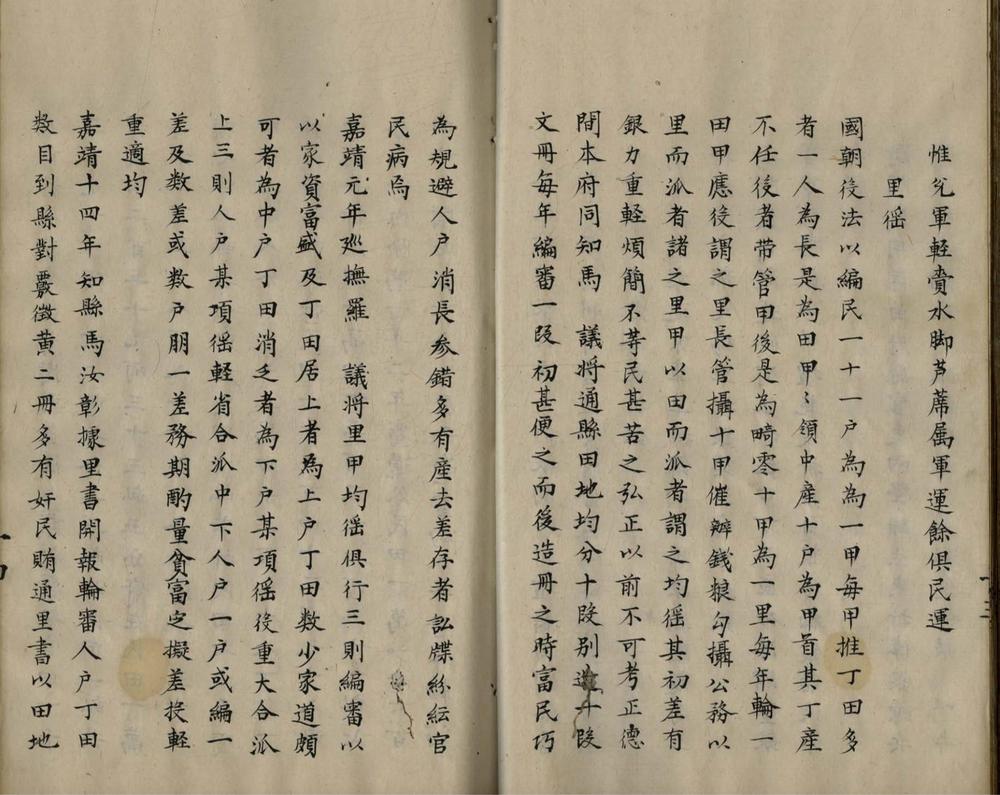 惟兊軍輕賫水脚芦蓆属軍運餘俱民運
里徭
國朝役法以編民一十一户為為一甲每甲推丁田多
者一人為長是為田甲〻領中産十户為甲首其丁産
不任役者带管甲後是為畸零十甲為一里每年輪一
田甲應役謂之里長管攝十甲催辦錢粮勾攝公務以
里而派者謂之里甲以田而派者謂之均徭其初差有
銀力重輕煩簡不等民甚苦之弘正以前不可考正德
間本府同知馬 議將通縣田地均分十段别造十段
文冊每年編審一段初甚便之而後造冊之時富民巧
為規避人户消長参錯多有産去差存者訟牒紛紜官
民病焉
嘉靖元年廵撫羅 議將里甲均徭俱行三則編審以
以家資富盛及丁田居上者為上户丁田数少家道頗
可者為中户丁田消乏者為下户某項徭役重大合派
上三則人户某項徭輕省合派中下人户一户或編一
差及数差或数户朋一差務期酌量貧富定擬差役輕
重適均
嘉靖十四年知縣馬汝彰據里書開報輪審人户丁田
数目到縣對覈徴黄二冊多有奸民賄通里書以田地